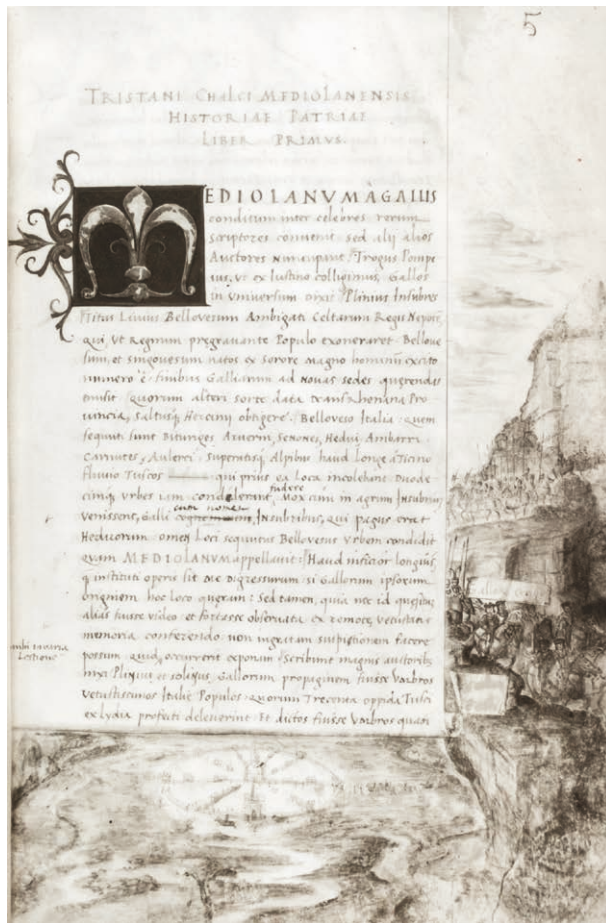 5
TRISTANI CHALCI MEDIOLANENSIS
HISTORIAE PATRIAE
LIBER PRIMVS.
MEDIOLANVM A GALLIS
conditum inter celebres rerum
scriptores convenit sed alij alios
Auctores nuncupant. Trogus Pompe
ius, ut ex Iustino colligimus, Gallos
in universum dixit. Plinius Insubres
Titus Livius Bellovesum Ambigati Celtarum Regis Nepotē,
qui, ut Regnum pregravante Populo exoneraret. Bellove
sum, et sigovesum natos ex sorore magno hominū
numero è finibus Galliarum ad novas sedes querendas
misit. quorum alteri sorte data transrhenana Pro
vincia, saltusq; Hercinij obtigere. Belloveso Italia. quem
sequuti sunt Bituriges Arverni, Senones, Hedui, Ambarri
Carnutes, Aulerci. superatisq; Alpibus haud longe à Ticino
fluvio Tuscos qui prius ea loca incolebant duode
cimq; urbes iam mox cum in agrum Insubriū
venissent, Galli Insubribus, qui pagus erat
Heduorum omen loci sequutus Bellovesus urbem condidit
quam MEDIOLANVM appellavit. Haud inficior longius,
q instituti operis sit me digressurum si Gallorum ipsorum
originem hoc loco queram: Sed tamen, quia nec id quesitū
alias fuisse video et fortasse observata ex remota vetustatis
memoria conferendo non ingratam suspitionem facere
possum. quid occurrerit exponam. Scribunt magnis auctoribꝰ
Plinius et solinus, Gallorum propaginem fuisse Vmbros
vetustissimos Italie Populos. quorum Trecenta oppida Tusci
ex lydia profecti deleverint. Et dictos fuisse Vmbros quasi